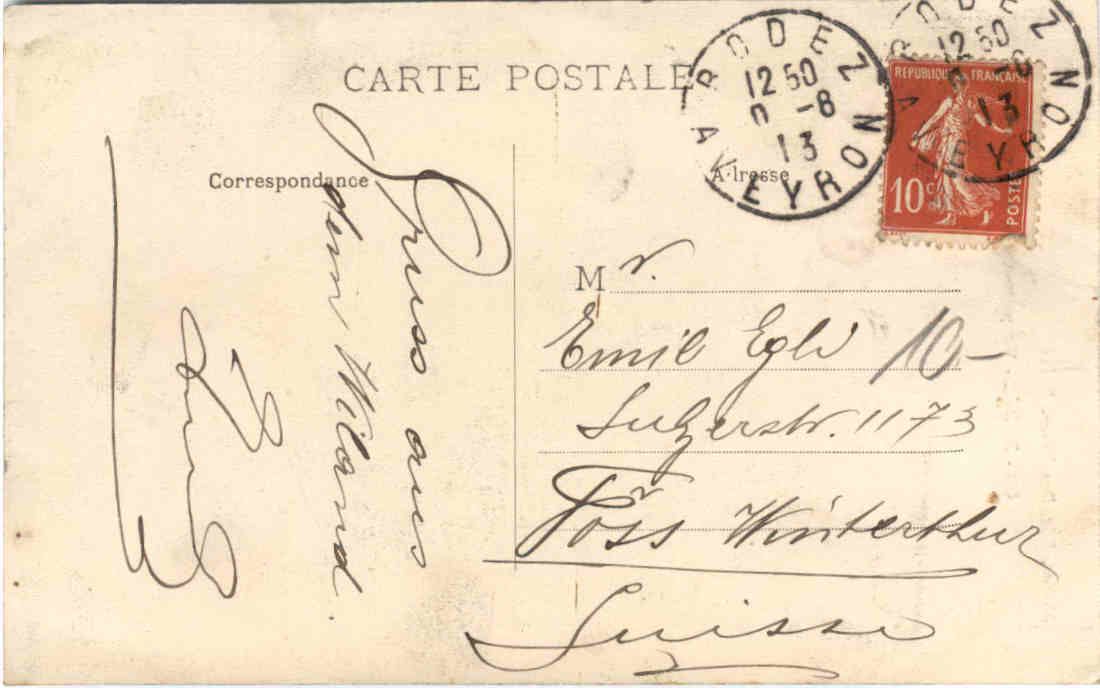 CARTE POSTALE
Correspondance
Adresse
RODEZ
12 50
-8
13
AVEYRON
RODEZ
12 50
-8
13
AVEYRON
REPUBLIQUE FRANÇAISE
10c
POSTES
Gruss aus
dem Wiland
Mr.
Emil Egli 10-
Sulzerstr. 1173
Töss Winterthur
Suisse